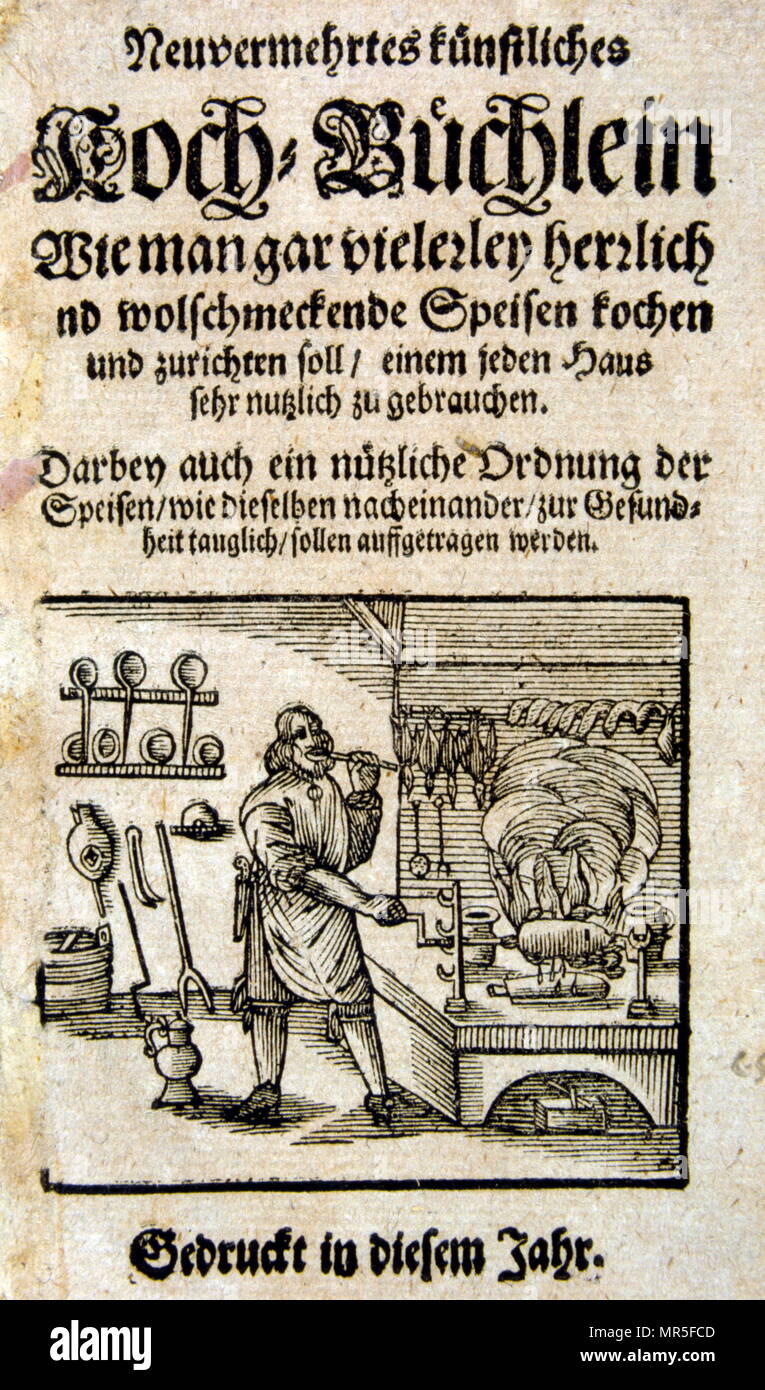 Neuvermehrtes künstliches
Koch-Büchlein
Wie man gar vielerley herrlich
nd wolschmeckende Speisen kochen
und zurichten soll/ einem jeden Haus
sehr nutzlich zu gebrauchen.
Darbey auch ein nützliche Ordnung der
Speisen/wie dieselben nacheinander/zur Gesund-
heit tauglich/sollen auffgetragen werden.
Gedruckt in diesem Jahr.
alamy
Image ID: MR5FCD
www.alamy.com